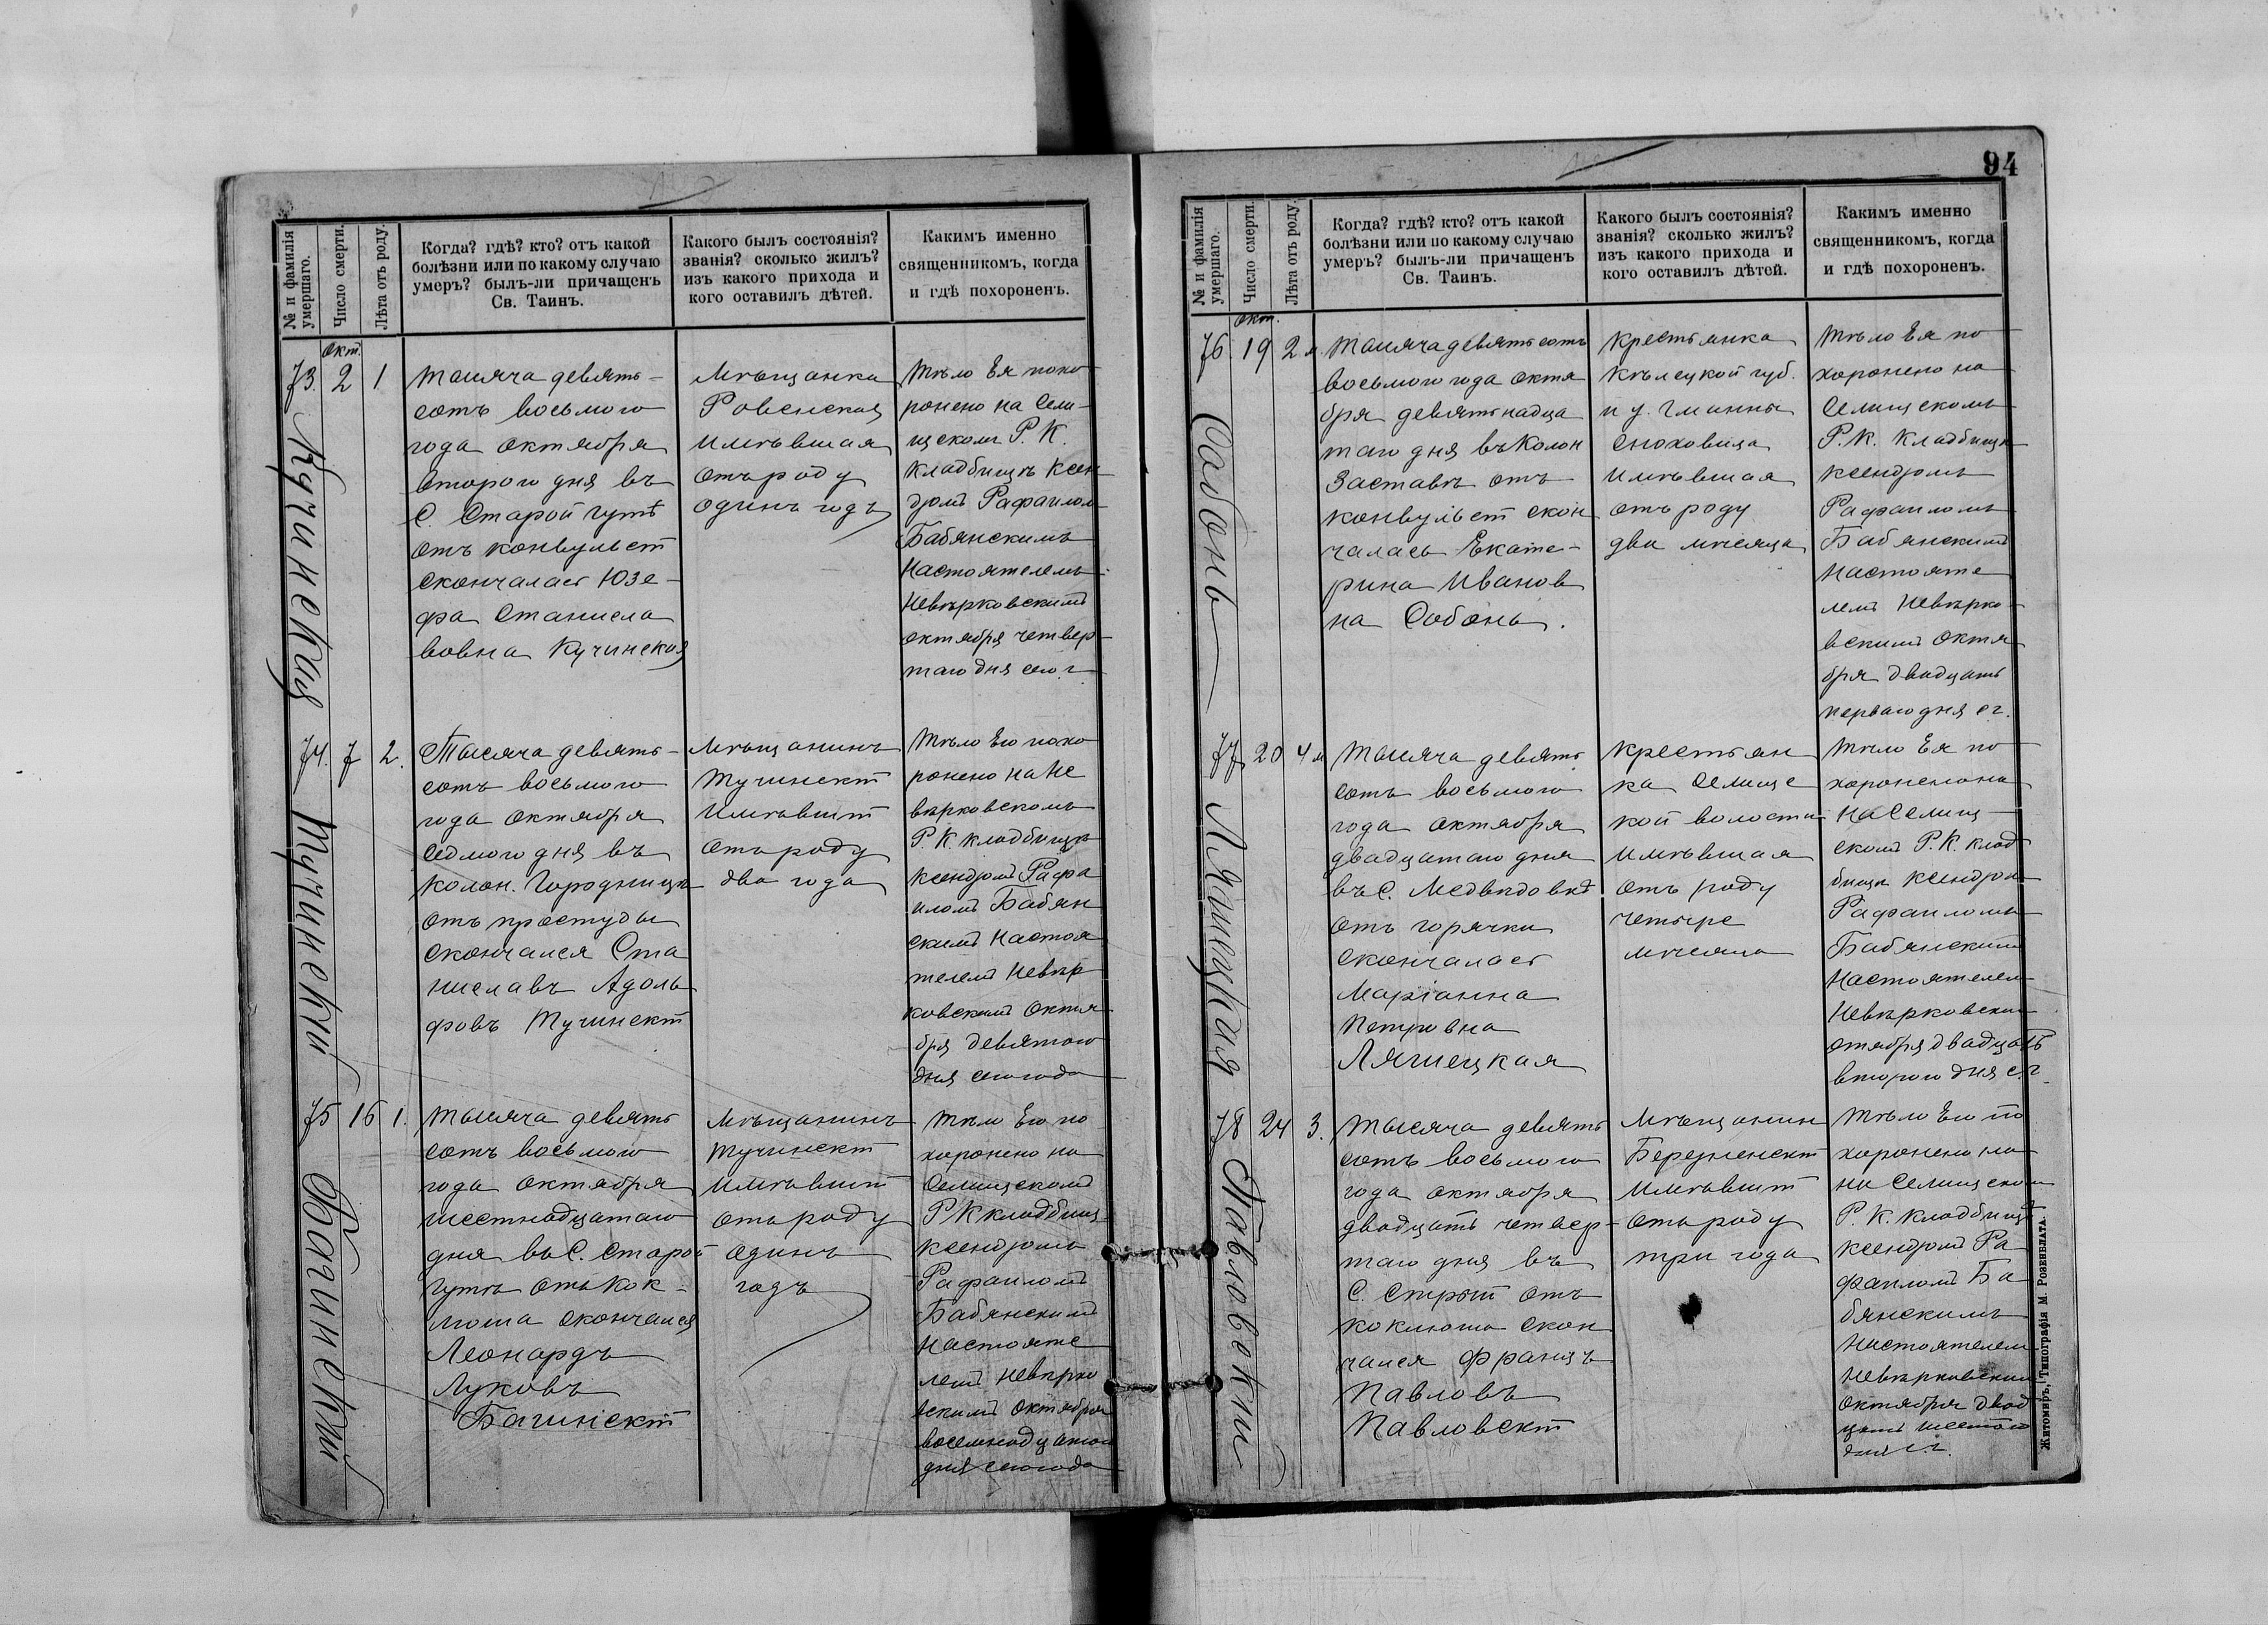 94
№ и фамилія умершаго.
Число смерти.
Лѣта отъ роду.
Когда? гдѣ? кто? отъ какой
болѣзни или по какому случаю
умеръ? былъ-ли причащенъ
Св. Таинъ.
Какого былъ состоянія?
званія? сколько жилъ?
изъ какого прихода и
кого оставилъ дѣтей.
Какимъ именно
священникомъ, когда
и гдѣ похороненъ.
Окт.
73. 2 1
Кучинская
Тысяча девять-
сотъ восьмого
года октября
второго дня въ
С. Старой гутѣ
отъ конвульсій
скончалась Юзе-
фа Станисла
вовна Кучинская
Мѣщанка
Ровенская
имѣвшая
отъ роду
одинъ годъ
Тѣло Ея похо
ронено на Сели-
щскомъ Р. К.
кладбищѣ ксен
дзомъ Рафаиломъ
Бабянскимъ
Настоятелемъ
Невѣрковскимъ
октября четвер
таго дня сего г.
74. 7 2.
Тучинскій
Тысяча девять-
сотъ восьмого
года октября
седмого дня въ
колон. Городницѣ
отъ простуды
скончался Ста
ниславъ Адоль
фовъ Тучинскій
Мѣщанинъ
Тучинскій
имѣвшій
отъ роду
два года
Тѣло Его похо
ронено на Не
вѣрковскомъ
Р. К. кладбищѣ
ксендзомъ Рафа
иломъ Бабян
скимъ Настоя
телемъ Невѣр
ковскимъ Октя
бря девятого
дня сего года
75 16 1.
Багинскій
Тысяча девять
сотъ восьмого
года октября
шестнадцатаго
дня въ С. Старой
гутѣ отъ кок-
люша скончался
Леонардъ
Луковъ
Багинскій
Мѣщанинъ
Тучинскій
имѣвшій
отъ роду
одинъ
годъ
Тѣло Его по
хоронено на
Селищскомъ
Р К кладбищ
ксендзомъ
Рафаиломъ
Бабянскимъ
Настояте
лемъ Невѣрко
вскимъ октября
восемнадцатаго
дня сего года
№ и фамилія умершаго.
Число смерти.
Лѣта отъ роду.
Когда? гдѣ? кто? отъ какой
болѣзни или по какому случаю
умеръ? былъ-ли причащенъ
Св. Таинъ.
Какого былъ состоянія?
званія? сколько жилъ?
изъ какого прихода и
кого оставилъ дѣтей.
Какимъ именно
священникомъ, когда
и гдѣ похороненъ.
Окт.
76 19 2 м
Собонь
Тысяча девятьсотъ
восьмого года октя
бря девятнадца
таго дня въ Колон
Заставѣ отъ
конвульсій скон
чалась Екате-
рина Иванов
на Собонь.
Крестьянка
Кѣлецкой губ.
и у. гмины
Сноховица
имѣвшая
отъ роду
два мѣсяца
Тѣло Ея по
хоронено на
Селищскомъ
Р. К. Кладбищѣ
ксендзомъ
Рафаиломъ
Бабянскимъ
Настояте
лемъ Невѣрко
вскимъ Октя
бря двадцать
перваго дня с г.
77 20 4 м
Лягиецкая
Тысяча девять
сотъ восьмого
года октября
двадцатаго дня
въ С. Медвѣдовкѣ
отъ горячки
скончалась
Маріанна
Петровна
Лягиецкая
Крестьян
ка Селище
кой волости
имѣвшая
отъ роду
четыре
мѣсяца
Тѣло Ея по
хоронено на
на Селищ-
скомъ Р. К. клад
бищѣ ксендзом
Рафаиломъ
Бабянскимъ
Настоятелем
Невѣрковским
отября двадцать
второго дня с. г.
78 24 3.
Павловскій
Тысяча девять
сотъ восьмого
года октября
двадцать четвер-
таго дня въ
С. Стрый отъ
коклюша скон
чался Францъ
Павловъ
Павловскій
Мѣщанин
Березненскій
имѣвшій
отъ роду
три года
Тѣло Его по
хоронено на
на Селищском
Р. К. кладбищѣ
ксендзомъ Ра
фаиломъ Ба
бянскимъ
Настоятелем
Невѣрковским
октября двад
цать шестого
дня с. г.
Житомиръ, Типографія М. Розенблата.